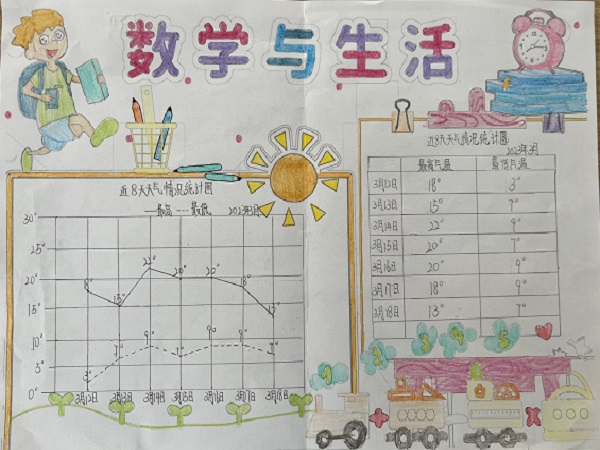 数学与生活
近8天天气情况统计图
—最高 ---最低 2023年3月
30°
25°
20°
15°
10°
5°
0°
18° 15° 22° 20° 20° 18° 13°
3° 7° 9° 7° 9° 9° 7°
3月12日 3月13日 3月14日 3月15日 3月16日 3月17日 3月18日
近8天天气情况统计图
2023年3月
最高气温 最低气温
3月12日 18° 3°
3月13日 15° 7°
3月14日 22° 9°
3月15日 20° 7°
3月16日 20° 9°
3月17日 18° 9°
3月18日 13° 7°
1 2 3 4 5
+ ×